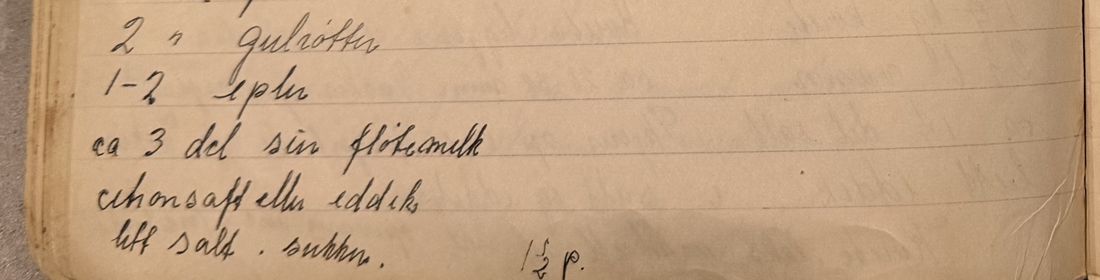 2 " gulrøtter
1-2 epler
ca 3 del sur fløtemelk
citronsaft eller eddik
litt salt . sukker.
1 1/2 p.